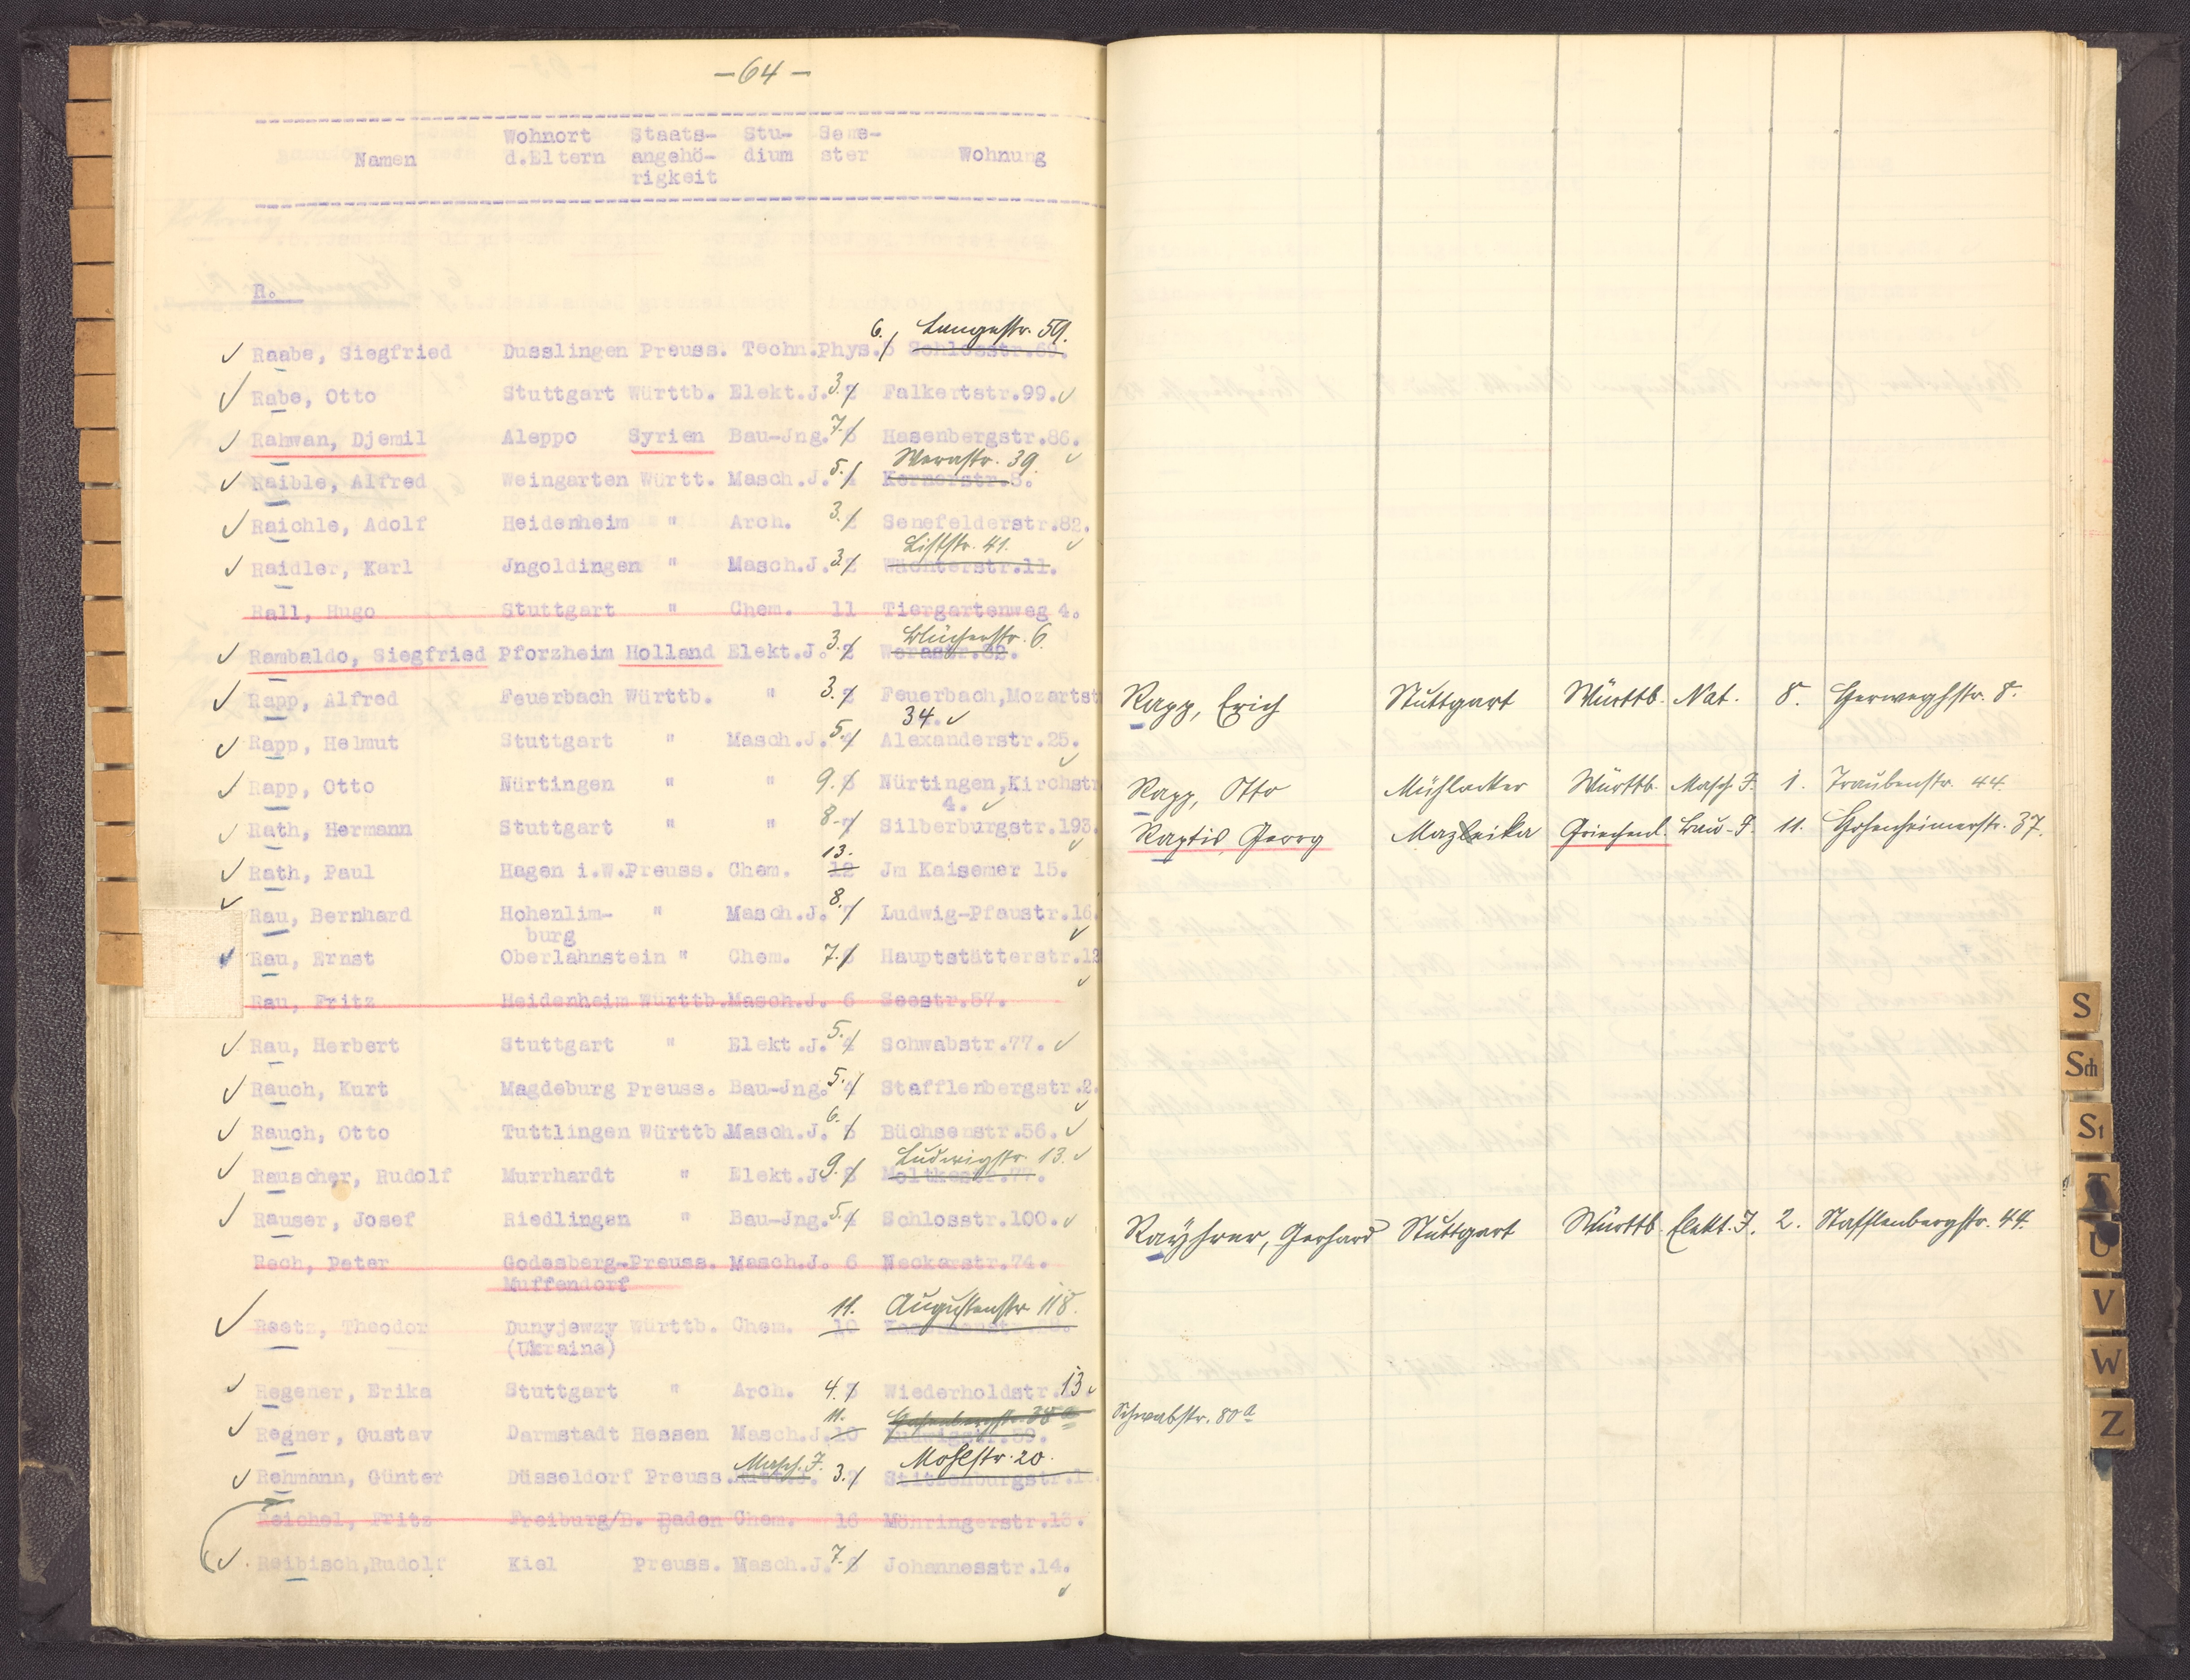 -64-
Namen Wohnort d.Eltern Staats-angehö-rigkeit Stu-dium Seme-ster Wohnung
R.
6. Langestr. 59.
Raabe, Siegfried Dusslingen Preuss. Techn.Phys.5 Schlosstr.69.
Rabe, Otto Stuttgart Württb. Elekt.J. 3. 2 Falkertstr.99.
Rahwan, Djemil Aleppo Syrien Bau-Jng. 7. 6 Hasenbergstr.86.
Werastr. 39.
Raible, Alfred Weingarten Württ. Masch.J. 5. 4 Kernerstr.8.
Raichle, Adolf Heidenheim " Arch. 3. 2 Senefelderstr.82.
Liststr. 41.
Raidler, Karl Jngoldingen " Masch.J. 3. 2 Wächterstr.11.
Rall, Hugo Stuttgart " Chem. 11 Tiergartenweg 4.
Blücherstr. 6.
Rambaldo, Siegfried Pforzheim Holland Elekt.J. 3. 2 Werastr.32.
Rapp, Alfred Feuerbach Württb. " 3. 2 Feuerbach,Mozartst
34.
Rapp, Helmut Stuttgart " Masch.J. 5. 4 Alexanderstr.25.
Rapp, Otto Nürtingen " " 9. 8 Nürtingen,Kirchstr
4.
Rath, Hermann Stuttgart " " 8. 7 Silberburgstr.193.
13.
Rath, Paul Hagen i.W.Preuss. Chem. 12 Jm Kaisemer 15.
Rau, Bernhard Hohenlim- " Masch.J. 8. 7 Ludwig-Pfaustr.16.
burg
Rau, Ernst Oberlahnstein " Chem. 7. 6 Hauptstätterstr.12
Rau, Fritz Heidenheim Württb.Masch.J. 6 Seestr.57.
Rau, Herbert Stuttgart " Elekt.J. 5. 4 Schwabstr.77.
Rauch, Kurt Magdeburg Preuss. Bau-Jng. 5. 4 Stafflenbergstr.2.
Rauch, Otto Tuttlingen Württb.Masch.J. 6. 5 Büchsenstr.56.
Ludwigstr. 13.
Rauscher, Rudolf Murrhardt " Elekt.J. 9. 8 Moltkestr.77.
Rauser, Josef Riedlingen " Bau-Jng. 5. 4 Schlosstr.100.
Rech, Peter Godesberg-Preuss. Masch.J. 6 Neckarstr.74.
Muffendorf
11. Augustenstr. 118.
Reetz, Theodor Dunyjewzy Württb. Chem. 10
(Ukraine)
Regener, Erika Stuttgart " Arch. 4. 3 Wiederholdstr.13
11. 38a
Regner, Gustav Darmstadt Hessen Masch.J. 10 Ludwigstr.59.
Masch. J. Mohlstr. 20.
Rehmann, Günter Düsseldorf Preuss. 3. 2 Stitzenburgstr.1
Reichel, Fritz Freiburg/B. Baden Chem. 16 Möhringerstr.13.
Reibisch,Rudolf Kiel Preuss. Masch.J. 7. 6 Johannesstr.14.
Rapp, Erich Stuttgart Württb. Nat. 8. Herweghstr. 8.
Rapp, Otto Mühlacker Württb. Masch. J. 1. Traubenstr. 44.
Raptis, Georg Mazleika Griechenl. Bau-J. 11. Hohenheimerstr. 37.
Rayhrer, Gerhard Stuttgart Württb. Elekt. J. 2. Stafflenbergstr. 44.
Schwabstr. 80a
S
Sch
St
T
U
V
W
Z